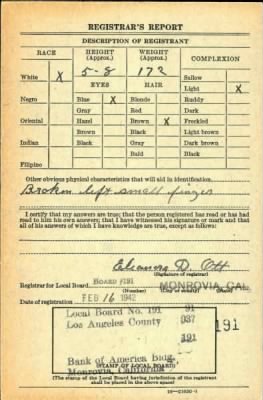 REGISTRAR'S REPORT
DESCRIPTION OF REGISTRANT
RACE HEIGHT (Approx.) WEIGHT (Approx.) COMPLEXION
White X 5-8 172 Sallow
EYES HAIR Light X
Negro Blue X Blonde Ruddy
Gray Red Dark
Oriental Hazel Brown X Freckled
Brown Black Light brown
Indian Black Gray Dark brown
Bald Black
Filipino
Other obvious physical characteristics that will aid in identification.
Broken left small finger
I certify that my answers are true; that the person registered has read or has had
read to him his own answers; that I have witnessed his signature or mark and that
all of his answers of which I have knowledge are true, except as follows:
Eleanora D. Ott
(Signature of registrar)
Registrar for Local Board BOARD #191 MONROVIA, CAL
(Number)
Date of registration FEB 16 1942
Local Board No. 191 91
Los Angeles County 037
191
191
Bank of America Bldg.
Monrovia, California
(STAMP OF LOCAL BOARD)
(The stamp of the Local Board having jurisdiction of the registrant
shall be placed in the above space)